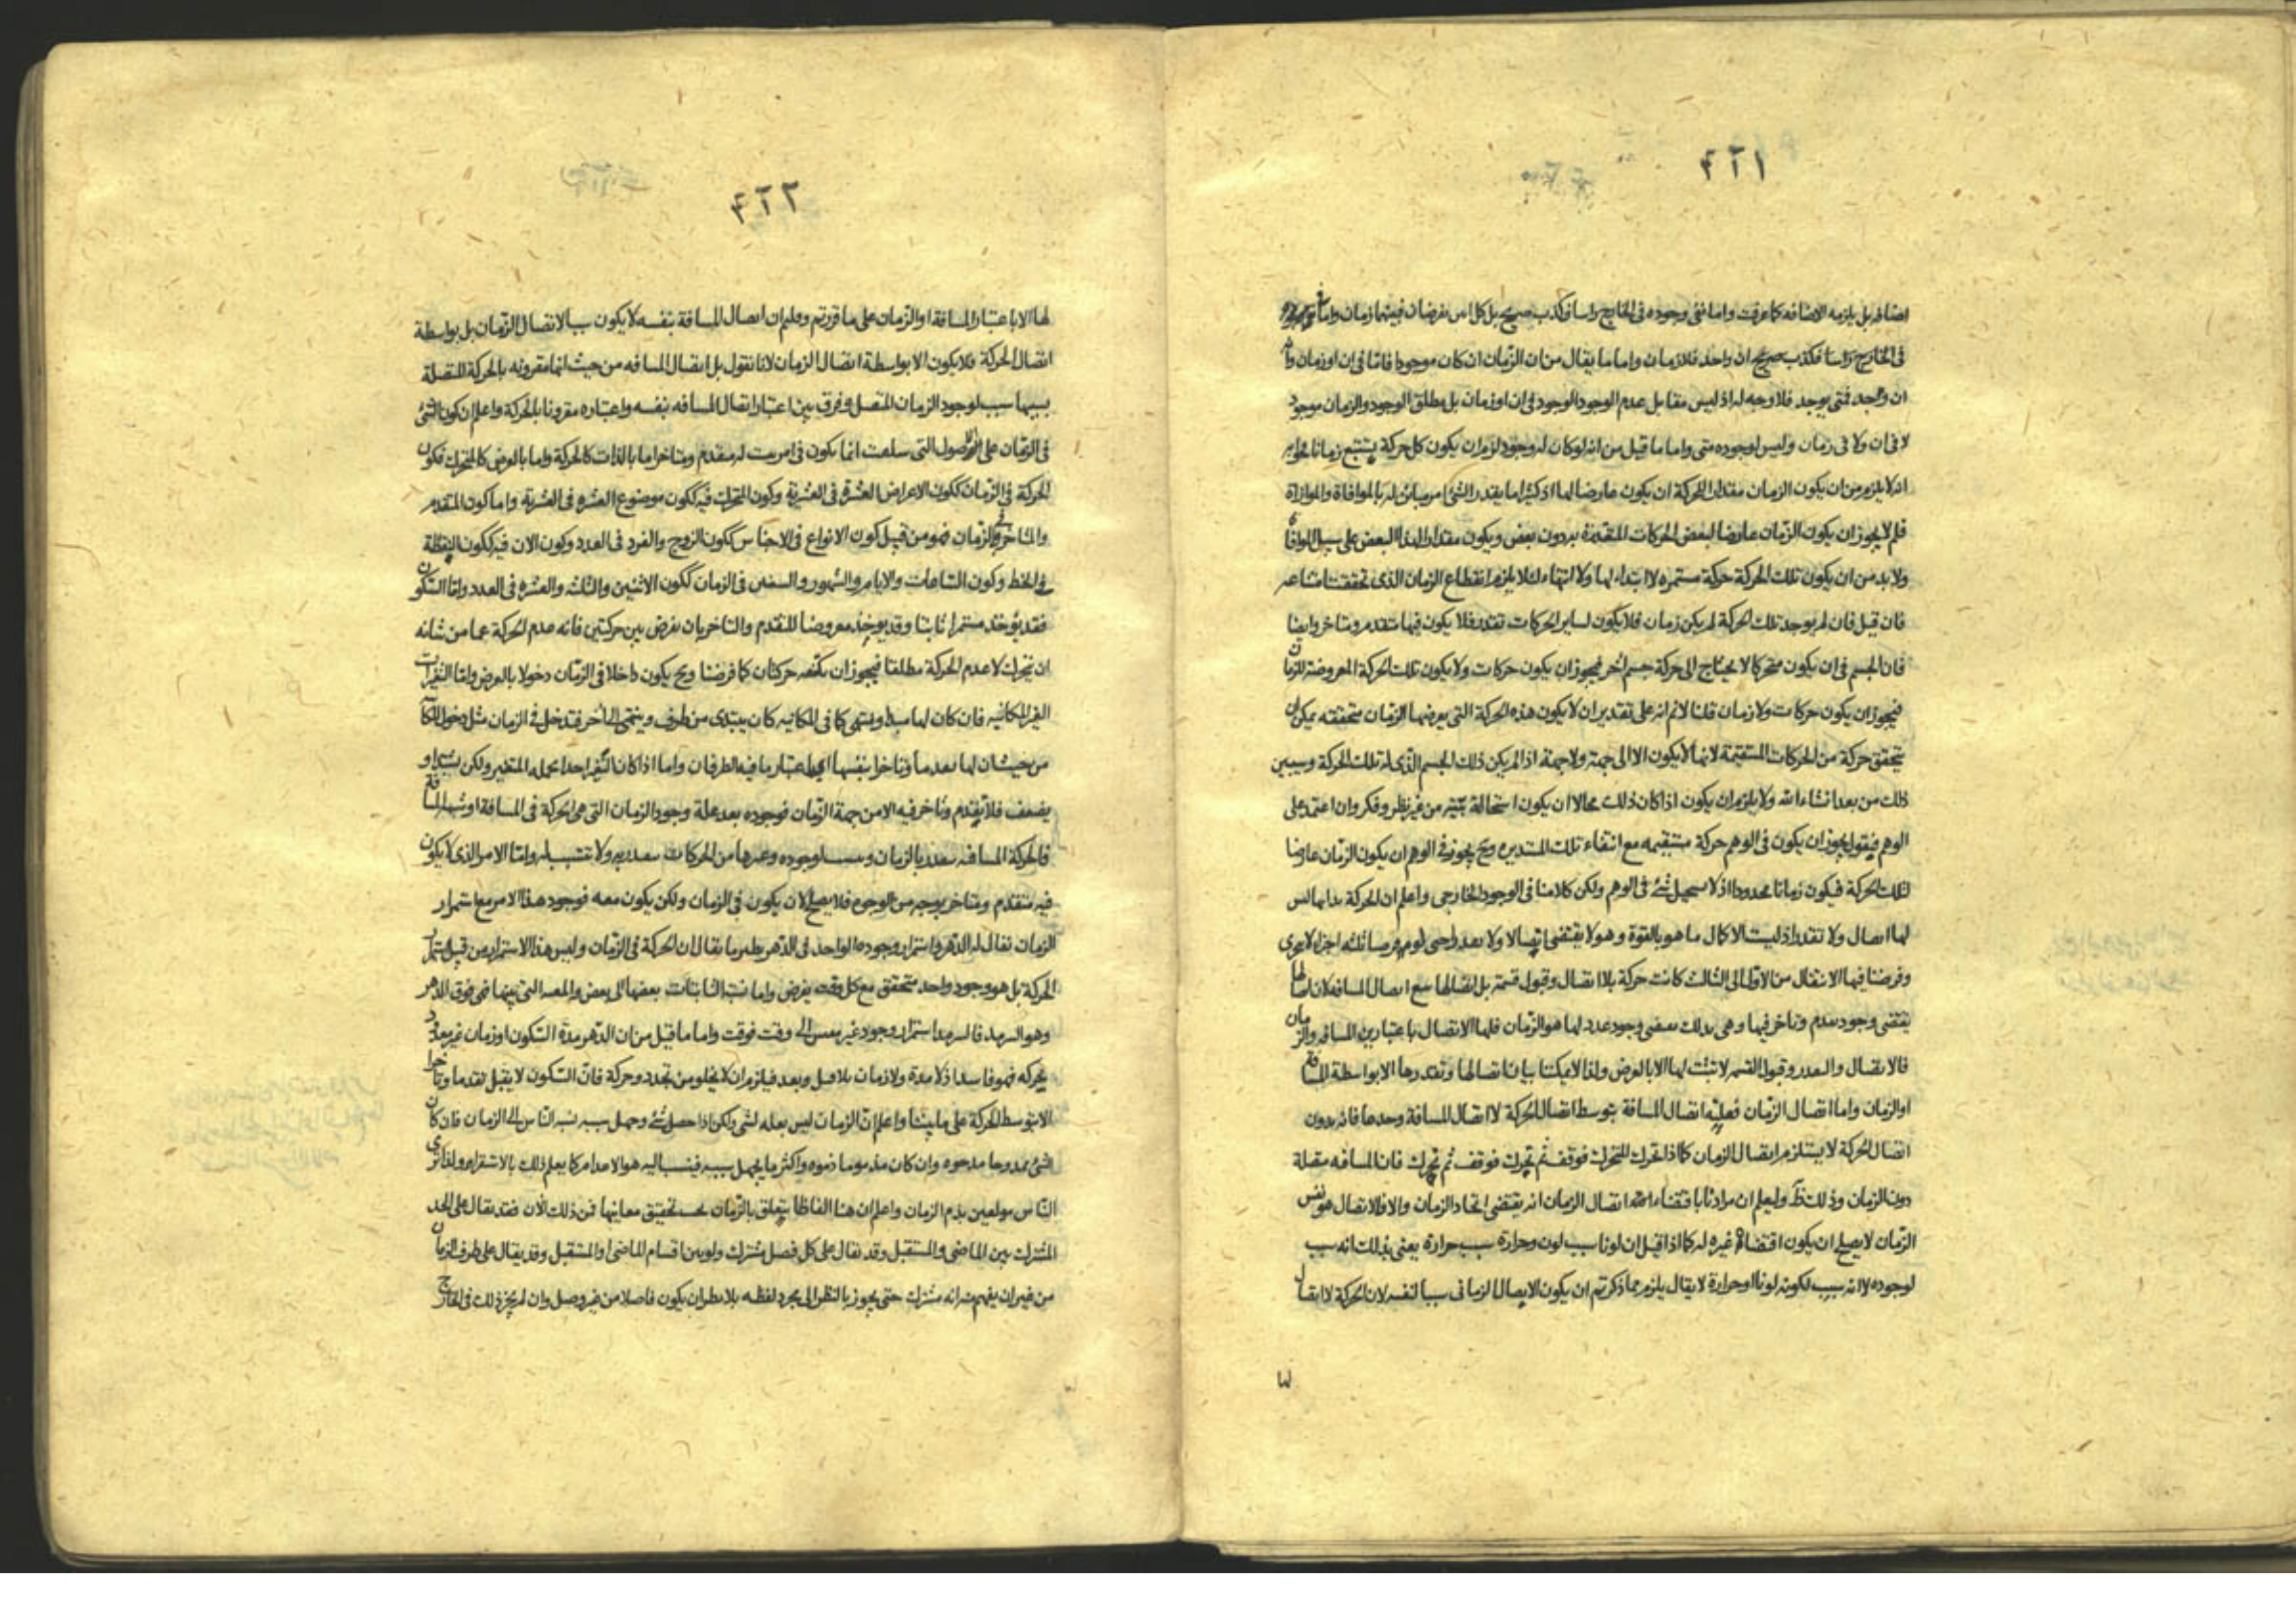 ۴۲۱
اضافه بل يلزمه الاضافه كما عرفت واما نفى وجوده فى الخارج راسا فكذب صريح بل كل اس يفرضان فبينهما زمان واما
فى الخارج راسا فكذب صريح ان واحد فلازمان واما ما يقال من ان الزمان ان كان موجودا فاما فى ان او زمان وانه
ان وجد فمتى يوجد فلا وجه له اذ ليس مقابل عدم الوجود الوجود فى ان او زمان بل مطلق الوجود والزمان موجود
لا فى ان ولا فى زمان وليس لوجوده متى واما ما قيل من انه لو كان له وجود لزم ان يكون كل حركة يستتبع زمانا فجوابه
انه لا يلزم من ان يكون الزمان مقدار الحركة ان يكون عارضا لها اذ كثيرا ما يقدر الشئ امر مباين له بالموافاة والموازاة
فلم لا يجوز ان يكون الزمان عارضا لبعض الحركات المتقدمة به دون بعض ويكون مقدارا لهذا البعض على سبيل الموافاة
ولا بد من ان يكون تلك الحركة حركة مستمره لا ابتداء لها ولا انتهاء لئلا يلزم انقطاع الزمان الذى تحققت امتناعه
فان قيل فان لم يوجد تلك الحركة لم يكن زمان فلا يكون لساير الحركات تقدر فلا يكون فيها متقدم ومتاخر وايضا
فان الجسم فى ان يكون متحركا لا يحتاج الى حركة جسم اخر فيجوز ان يكون حركات ولا يكون تلك الحركة المعروضة للزمان
فيجوز ان يكون حركات ولا زمان قلنا لا نم انه على تقدير ان لا يكون هذه الحركة التى يعرضها الزمان متحققه يمكن ان
يتحقق حركة من الحركات المستقيمة لانها لا يكون الا الى جهة ولا جهة اذا لم يكن ذلك الجسم الذى له تلك الحركة وسيبين
ذلك من بعد انشاء الله ولا يلزم ان يكون اذا كان ذلك محالا ان يكون استحالة بينة من غير نظر وفكر وان اعتمد على
الوهم فيقول يجوز ان يكون فى الوهم حركة مستقيمه مع انتفاء تلك المستديره وح يجوز فى الوهم ان يكون الزمان عارضا
لتلك الحركة فيكون زمانا محدودا اذ لا يستحيل شئ فى الوهم ولكن كلامنا فى الوجود الخارجى واعلم ان الحركة بذاتها ليس
لها اتصال ولا تقدر اذ ليست الا كمال ما هو بالقوة وهو لا يقتضى اتصالا ولا تعدد احتى لو فرضنا ثلثه اجزاء لا يتجزى
وفرضنا فيها الانتقال من الاول الى الثالث كانت حركة بلا اتصال وقبول قسمة بل اتصالها مع اتصال المسافه لان اتصالها
يقتضى وجود تقدم وتاخر فيها وهى بذلك يقتضى وجود عدد لها هو الزمان فلها الاتصال باعتبارين المسافه والزمان
فالاتصال والتعدد وقبول القسمه لا تثبت لها الا بالعرض ولذا لا يمكننا بيان اتصالها وتقدرها الا بواسطة المسافة
او الزمان واما اتصال الزمان فعليه اتصال المسافة بتوسط اتصال الحركة لا اتصال المسافة وحدها فانه بدون
اتصال الحركة لا يستلزم اتصال الزمان كما اذا تحرك المتحرك فوقف ثم تحرك فوقف ثم تحرك فان المسافه متصلة
دون الزمان وذلك ظ وليعلم ان مرادنا باقتضاء هذا اتصال الزمان انه يقتضى اتحاد الزمان والا فالاتصال هو نفس
الزمان لا يصلح ان يكون اقتضاه غيره له كما اذا قيل ان لونا سبب لون وحرارة سبب حرارة يعنى بذلك انه سبب
لوجوده لا انه سبب لكونه لونا او حرارة لا يقال يلزم مما ذكرتم ان يكون الاتصال الزمانى سببا لنفسه لان الحركة لا اتصال
لها
۴۲۲
لها الا باعتبار المسافة او الزمان على ما قررتم وعلم ان اتصال المسافة بنفسه لا يكون سببا لاتصال الزمان بل بواسطة
اتصال الحركة فلا يكون الا بواسطة اتصال الزمان لانا نقول بل اتصال المسافه من حيث انها مقرونه بالحركة المتصلة
بسببها سبب لوجود الزمان المتصل وفرق بين اعتبار اتصال المسافه بنفسه واعتباره مقرونا بالحركة واعلم ان كون الشئ
فى الزمان على الاصول التى سلفت انما يكون فى امر يثبت له متقدم ومتاخر اما بالذات كالحركة واما بالعرض كالمتحرك فكون
الحركة فى الزمان ككون الاعراض العشرة فى العشرية وكون المتحرك فيه ككون موضوع العشره فى العشرية واما كون المتقدم
والمتاخر فى الزمان فهو من قبيل كون الانواع فى الاجناس ككون الزوج والفرد فى العدد وكون الان فيه ككون النقطة
فى الخط وكون الساعات والايام والشهور والسنين فى الزمان ككون الاثنين والثلثه والعشره فى العدد واما السكون
فقد يؤخذ مستمرا ثابتا وقد يوجد معروضا للتقدم والتاخر بان يفرض بين حركتين فانه عدم الحركة عما من شانه
ان يتحرك لا عدم الحركة مطلقا فيجوز ان يكتنفه حركتان كما فرضنا وح يكون داخلا فى الزمان دخولا بالعرض واما التغيرات
الغير المكانيه فان كان لها مبدا ومنتهى كما فى المكانيه كان يبتدى من طرف وينتهى الى اخر فتدخل فى الزمان مثل دخول المكانية
من حيث ان لها تقدما وتاخرا بنفسها اعتبار ما فيه الطرفان واما اذا كان التغير احدا بجملة المتغير ولكن يشتد او
يضعف فلا تقدم وتاخر فيه الا من جهة الزمان فوجوده بعد علة وجود الزمان التى هى الحركة فى المسافة او شبه المسافة
فالحركة المسافيه بالزمان وسبب لوجوده وغيرها من الحركات ولا تتسبب له واما الامر الذى لا يكون
فيه متقدم ومتاخر بوجه من الوجوه فلا يصلح لان يكون فى الزمان ولكن يكون معه فوجود هذا الامر مع استمرار
الزمان يقال له الدهر واستمرار وجوده الواحد فى الدهر نظير ما يقال ان الحركة فى الزمان وليس هذا الاستمرار من قبيل استمرار
الحركة بل هو وجود واحد متحقق مع كل وقت يفرض واما نسبة الثابتات بعضها الى بعض والمعية التى بينهما فهى فوق الدهر
وهو السرمد فالسرمد استمرار وجود غير الى وقت فوقت واما ما قيل من ان الدهر مدة السكون او زمان غير معدود
بحركه فهو فاسد اذ لا مدة ولا زمان بلا قبل وبعد فيلزم ان لا يخلو من تجدد وحركة فان السكون لا يقبل تقدما وتاخرا
الا بتوسط الحركة على ما بينا واعلم ان الزمان ليس بعلة لشئ ولكن اذا حصل شئ وجهل سببه نسبه الناس الى الزمان فان كان
الشئ ممدوحا مدحوه وان كان مذموما ذموه واكثر ما يجهل سببه فينسب اليه هو الاعدام كما يعلم ذلك بالاستقراء ولذا ترى
الناس مولعين بذم الزمان واعلم ان هنا الفاظا يتعلق بالزمان يجب تحقيق معانيها فمن ذلك الان فقد يقال على الحد
المشترك بين الماضى والمستقبل وقد يقال على كل فصل مشترك ولو بين اقسام الماضى او المستقبل وقد يقال على طرف الزمان
من غير ان يفهم منه انه مشترك حتى يجوز بالنظر الى مجرد لفظه ان يكون فاصلا من غير وصل وان لم يجز ذلك فى الخارج